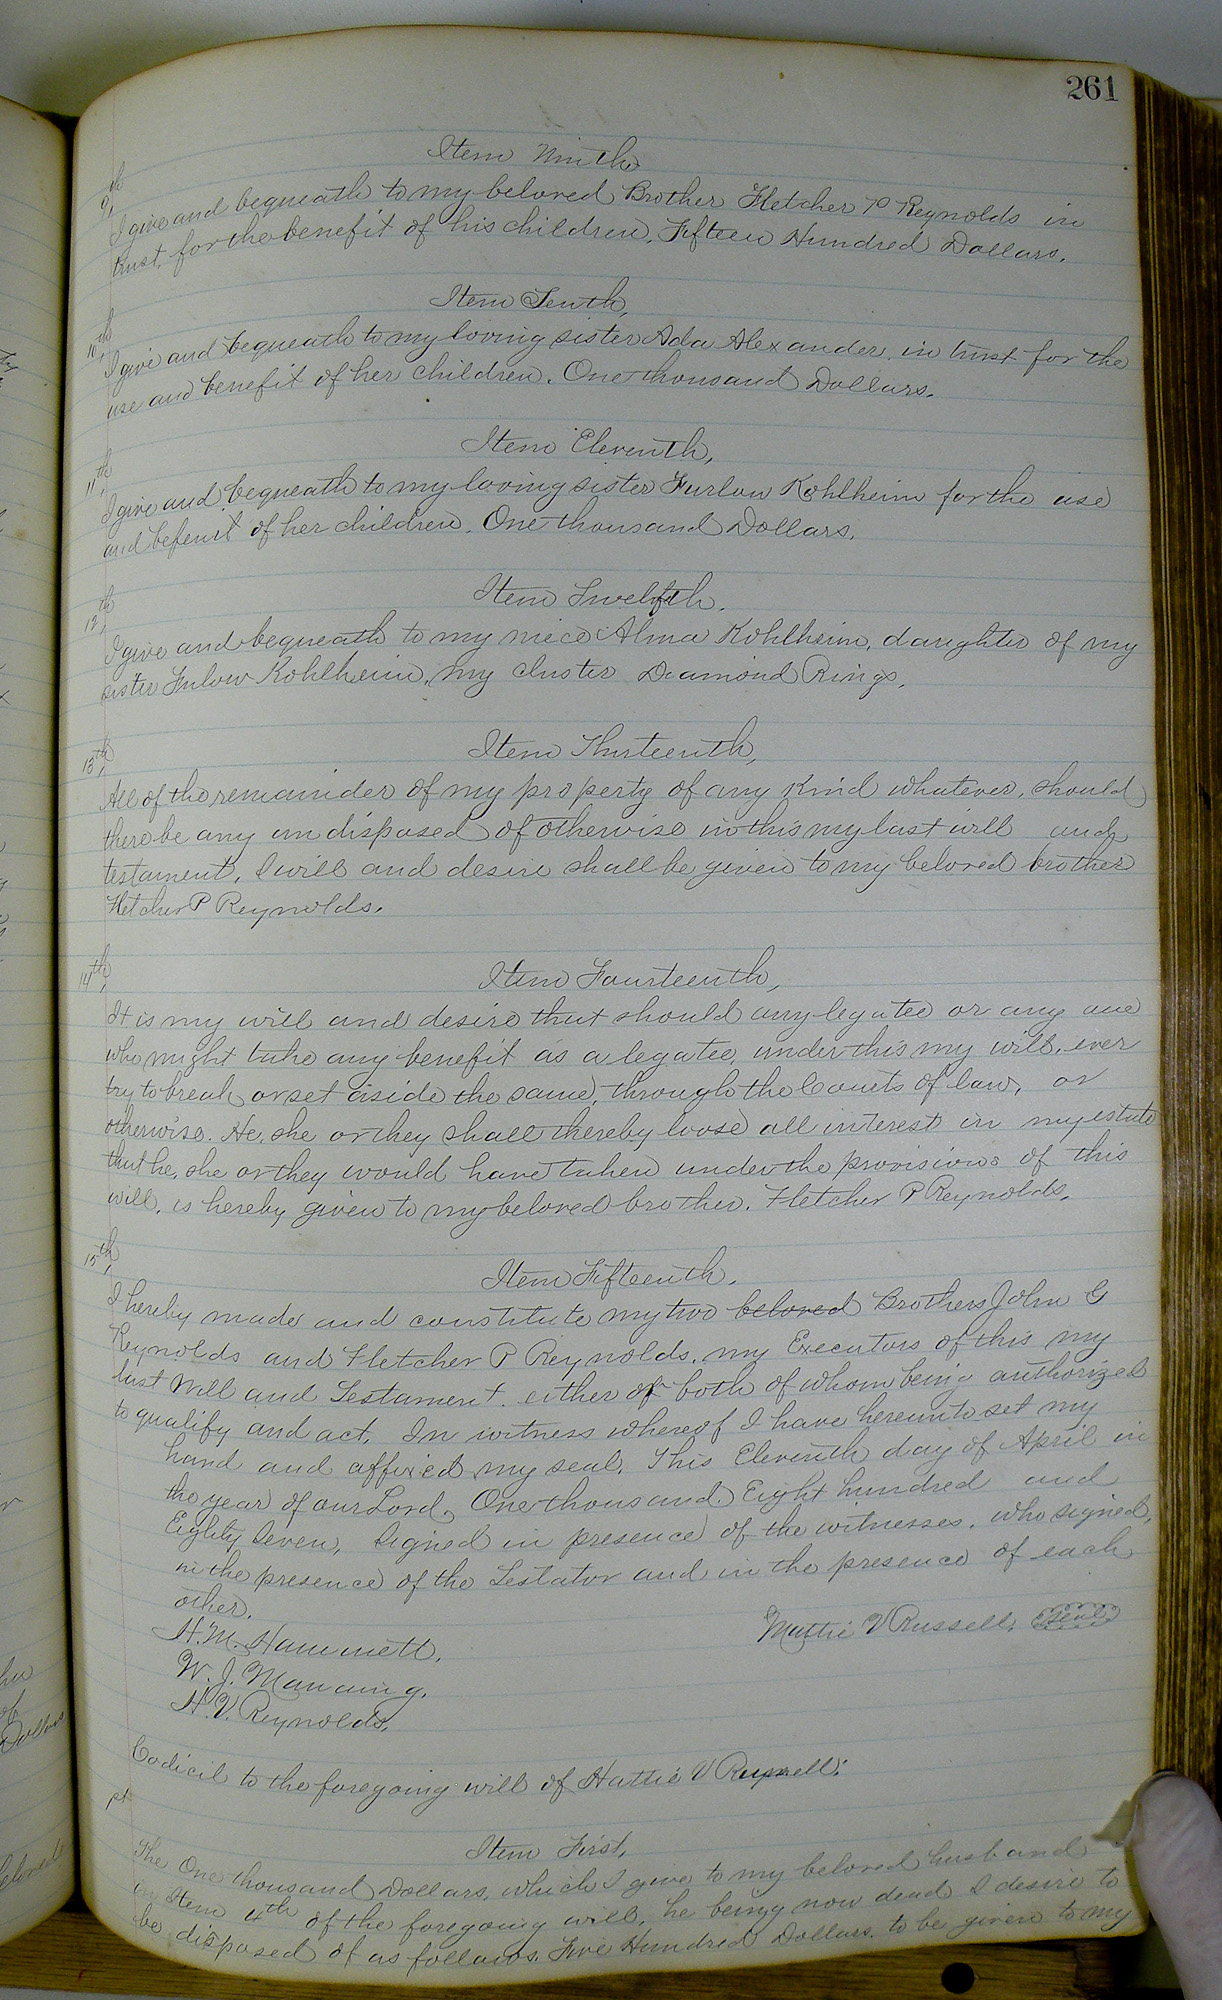 261
Item Ninth
9th,
I give and bequeath to my beloved Brother Fletcher P Reynolds in
trust, for the benefit of his children, Fifteen Hundred Dollars.
Item Tenth,
10th,
I give and bequeath to my loving sister Ada Alexander, in trust for the
use and benefit of her children. One thousand Dollars.
Item Eleventh,
11th,
I give and bequeath to my loving sister Furlow Kohlheim for the use
and befenit of her children. One thousand Dollars.
Item Twelfth.
12th,
I give and bequeath to my niece Alma Kohlheim, daughter of my
sister Fulow Kohlheim, my cluster Diamond Rings,
Item Thirteenth,
13th,
All of the remainder of my property of any kind whatever, should
there be any undisposed of otherwise in this my last will and
testament, I will and desire shall be given to my beloved brother
Fletcher P Reynolds.
Item Fourteenth,
14th,
It is my will and desire that should any legatee or any one
who might take any benefit as a legatee, under this my will, ever
try to break or set aside the same, through the Courts of law, or
otherwise. He, she or they shall thereby loose all interest in my estate
that he, she or they would have taken under the provisions of this
will, is hereby given to my beloved brother. Fletcher P Reynolds.
Item Fifteenth.
15th,
I hereby made and constitute my two beloved Brothers John G
Reynolds and Fletcher P Reynolds, my Executors of this my
last Will and Testament. either or both of whom being authorized
to qualify and act. In witness whereof I have hereunto set my
hand and affixed my seal. This Eleventh day of April in
the year of our Lord, One thousand Eight hundred and
Eighty Seven, Signed in presence of the witnesses, who signed,
in the presence of the Testator and in the presence of each
other.
Mattie V Russell. Seal
H. M. Hammett.
W. J. Manning.
H. V. Reynolds.
Codicil to the foregoing will of Hattie V Russell.
1st
Item First,
The One thousand Dollars, which I gave to my beloved husband
in Item 4th of the foregoing will, he being now dead I desire to
be disposed of as follows. Five Hundred Dollars, to be given to my